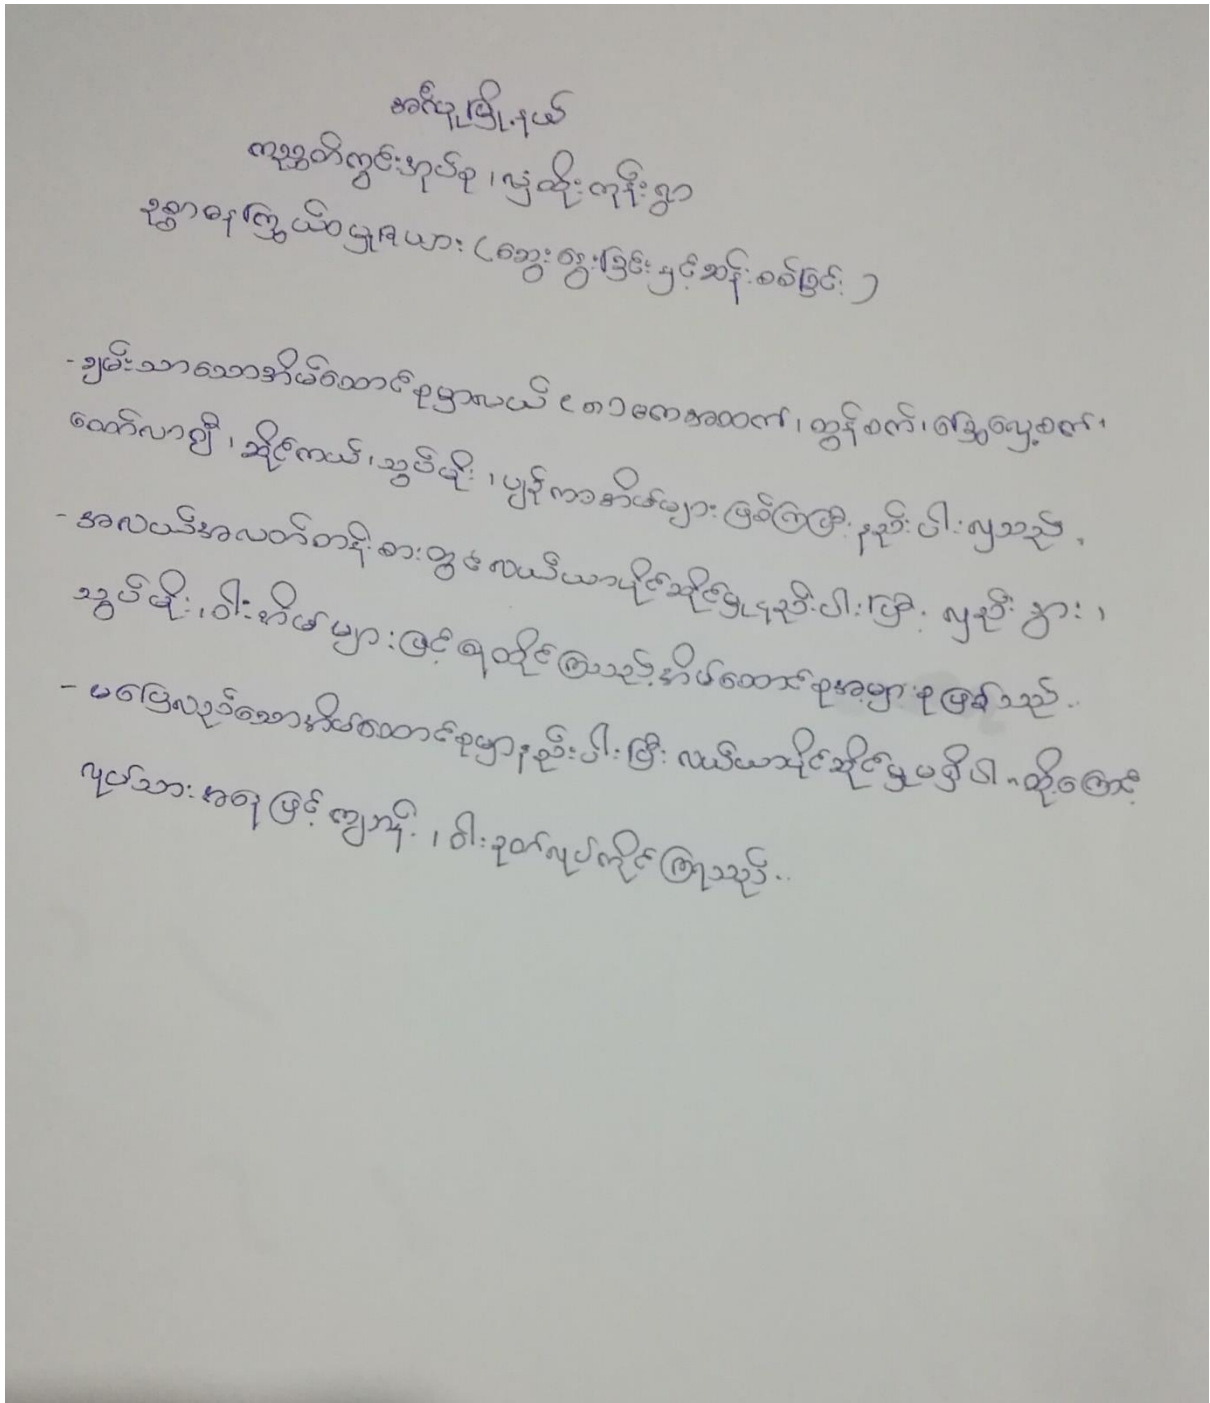 အင်္ဂပူမြို့နယ်
ကညွတ်ကွင်းအုပ်စု၊ လှံထိုးကုန်းရွာ
ဥစ္စာဓနကြွယ်ဝမှုဇယား (ဆွေးနွေးခြင်းနှင့်ဆန်းစစ်ခြင်း)
- ချမ်းသာသောအိမ်ထောင်စုမှာလယ် (၈) ဧကအထက်၊ ထွန်စက်၊ ခြွေလှေ့စက်၊
ထော်လာဂျီ၊ ဆိုင်ကယ်၊ သွပ်မိုး၊ ပျဉ်ကာအိမ်များဖြစ်ကြပြီး နည်းပါးလှသည်။
- အလယ်အလတ်တန်းစားတွင်လယ်ယာပိုင်ဆိုင်မှုနည်းပါးပြီး လှည်း၊ နွား၊
သွပ်မိုး၊ ဝါးအိမ်များဖြင့်နေထိုင်ကြသည့်အိမ်ထောင်စုအများစုဖြစ်သည်။
- မပြေလည်သောအိမ်ထောင်စုမှာနည်းပါးပြီး လယ်ယာပိုင်ဆိုင်မှုမရှိပါ။ ထို့ကြောင့်
လုပ်သားအနေဖြင့်ကျဘန်း၊ ဝါးခုတ်လုပ်ကိုင်ကြရသည်။